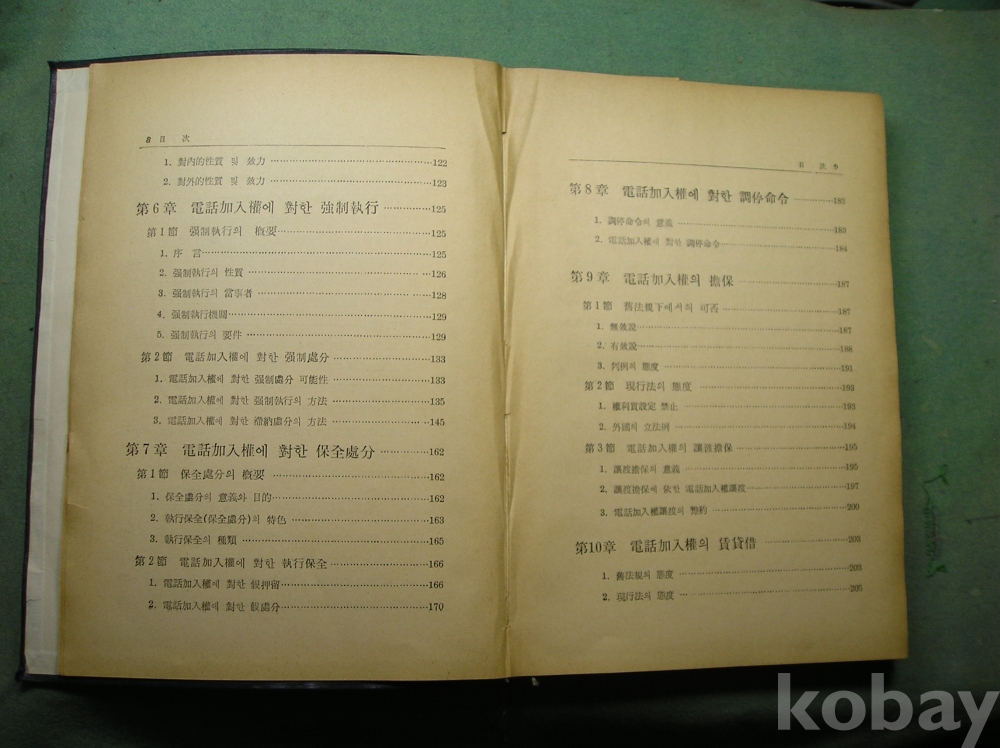 8 目 次
1. 對內的性質 및 效力 ……………122
2. 對外的性質 및 效力 ……………123
第6章 電話加入權에 對한 強制執行 ……………125
第1節 强制執行의 槪要 ……………125
1. 序 言 ……………125
2. 强制執行의 性質 ……………126
3. 强制執行의 當事者 ……………128
4. 强制執行機關 ……………129
5. 强制執行의 要件 ……………129
第2節 電話加入權에 對한 强制處分 ……………133
1. 電話加入權에 對한 强制處分 可能性 ……………133
2. 電話加入權에 對한 强制執行의 方法 ……………135
3. 電話加入權에 對한 滯納處分의 方法 ……………145
第7章 電話加入權에 對한 保全處分 ……………162
第1節 保全處分의 槪要 ……………162
1. 保全處分의 意義와 目的 ……………162
2. 執行保全(保全處分)의 特色 ……………163
3. 執行保全의 種類 ……………165
第2節 電話加入權에 對한 執行保全 ……………166
1. 電話加入權에 對한 假押留 ……………166
2. 電話加入權에 對한 假處分 ……………170
目 次 9
第8章 電話加入權에 對한 調停命令 ……………183
1. 調停命令의 意義 ……………183
2. 電話加入權에 對한 調停命令 ……………184
第9章 電話加入權의 擔保 ……………187
第1節 舊法規下에서의 可否 ……………187
1. 無效說 ……………187
2. 有效說 ……………188
3. 判例의 態度 ……………191
第2節 現行法의 態度 ……………193
1. 權利質設定 禁止 ……………193
2. 外國의 立法例 ……………194
第3節 電話加入權의 讓渡擔保 ……………195
1. 讓渡擔保의 意義 ……………195
2. 讓渡擔保에 依한 電話加入權讓渡 ……………197
3. 電話加入權讓渡의 豫約 ……………200
第10章 電話加入權의 賃貸借 ……………203
1. 舊法規의 態度 ……………203
2. 現行法의 態度 ……………205
kobay